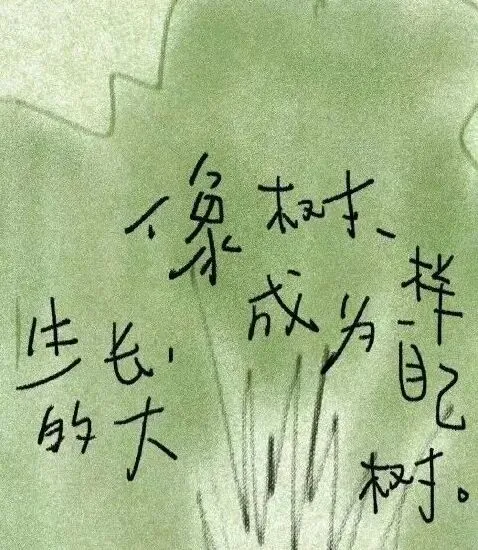 像树、一样
生长,成为自己
的大树。